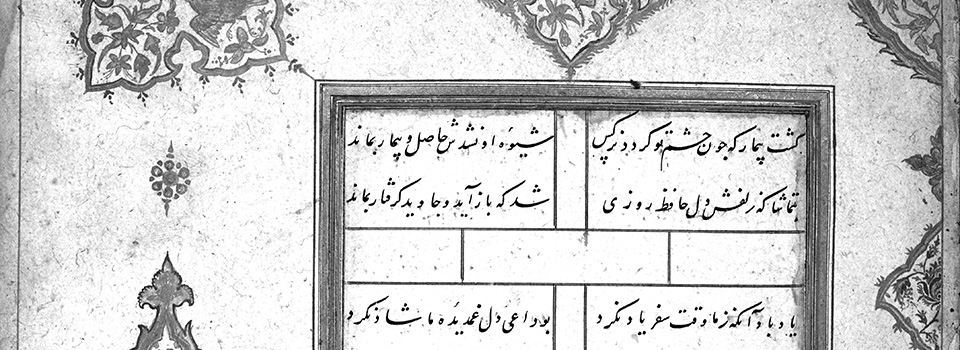 کشت بیمار که چون چشم تو کردد نرکس شیوهٔ او نشدش حاصل و بیمار بماند
بتماشاکه زلفش دل حافظ روزی شد که باز آید و جاوید کرفتار بماند
یاد باد آنکه ز ما وقت سفر یاد نکرد بوداعی دل غمدیدهٔ ما شاد نکرد